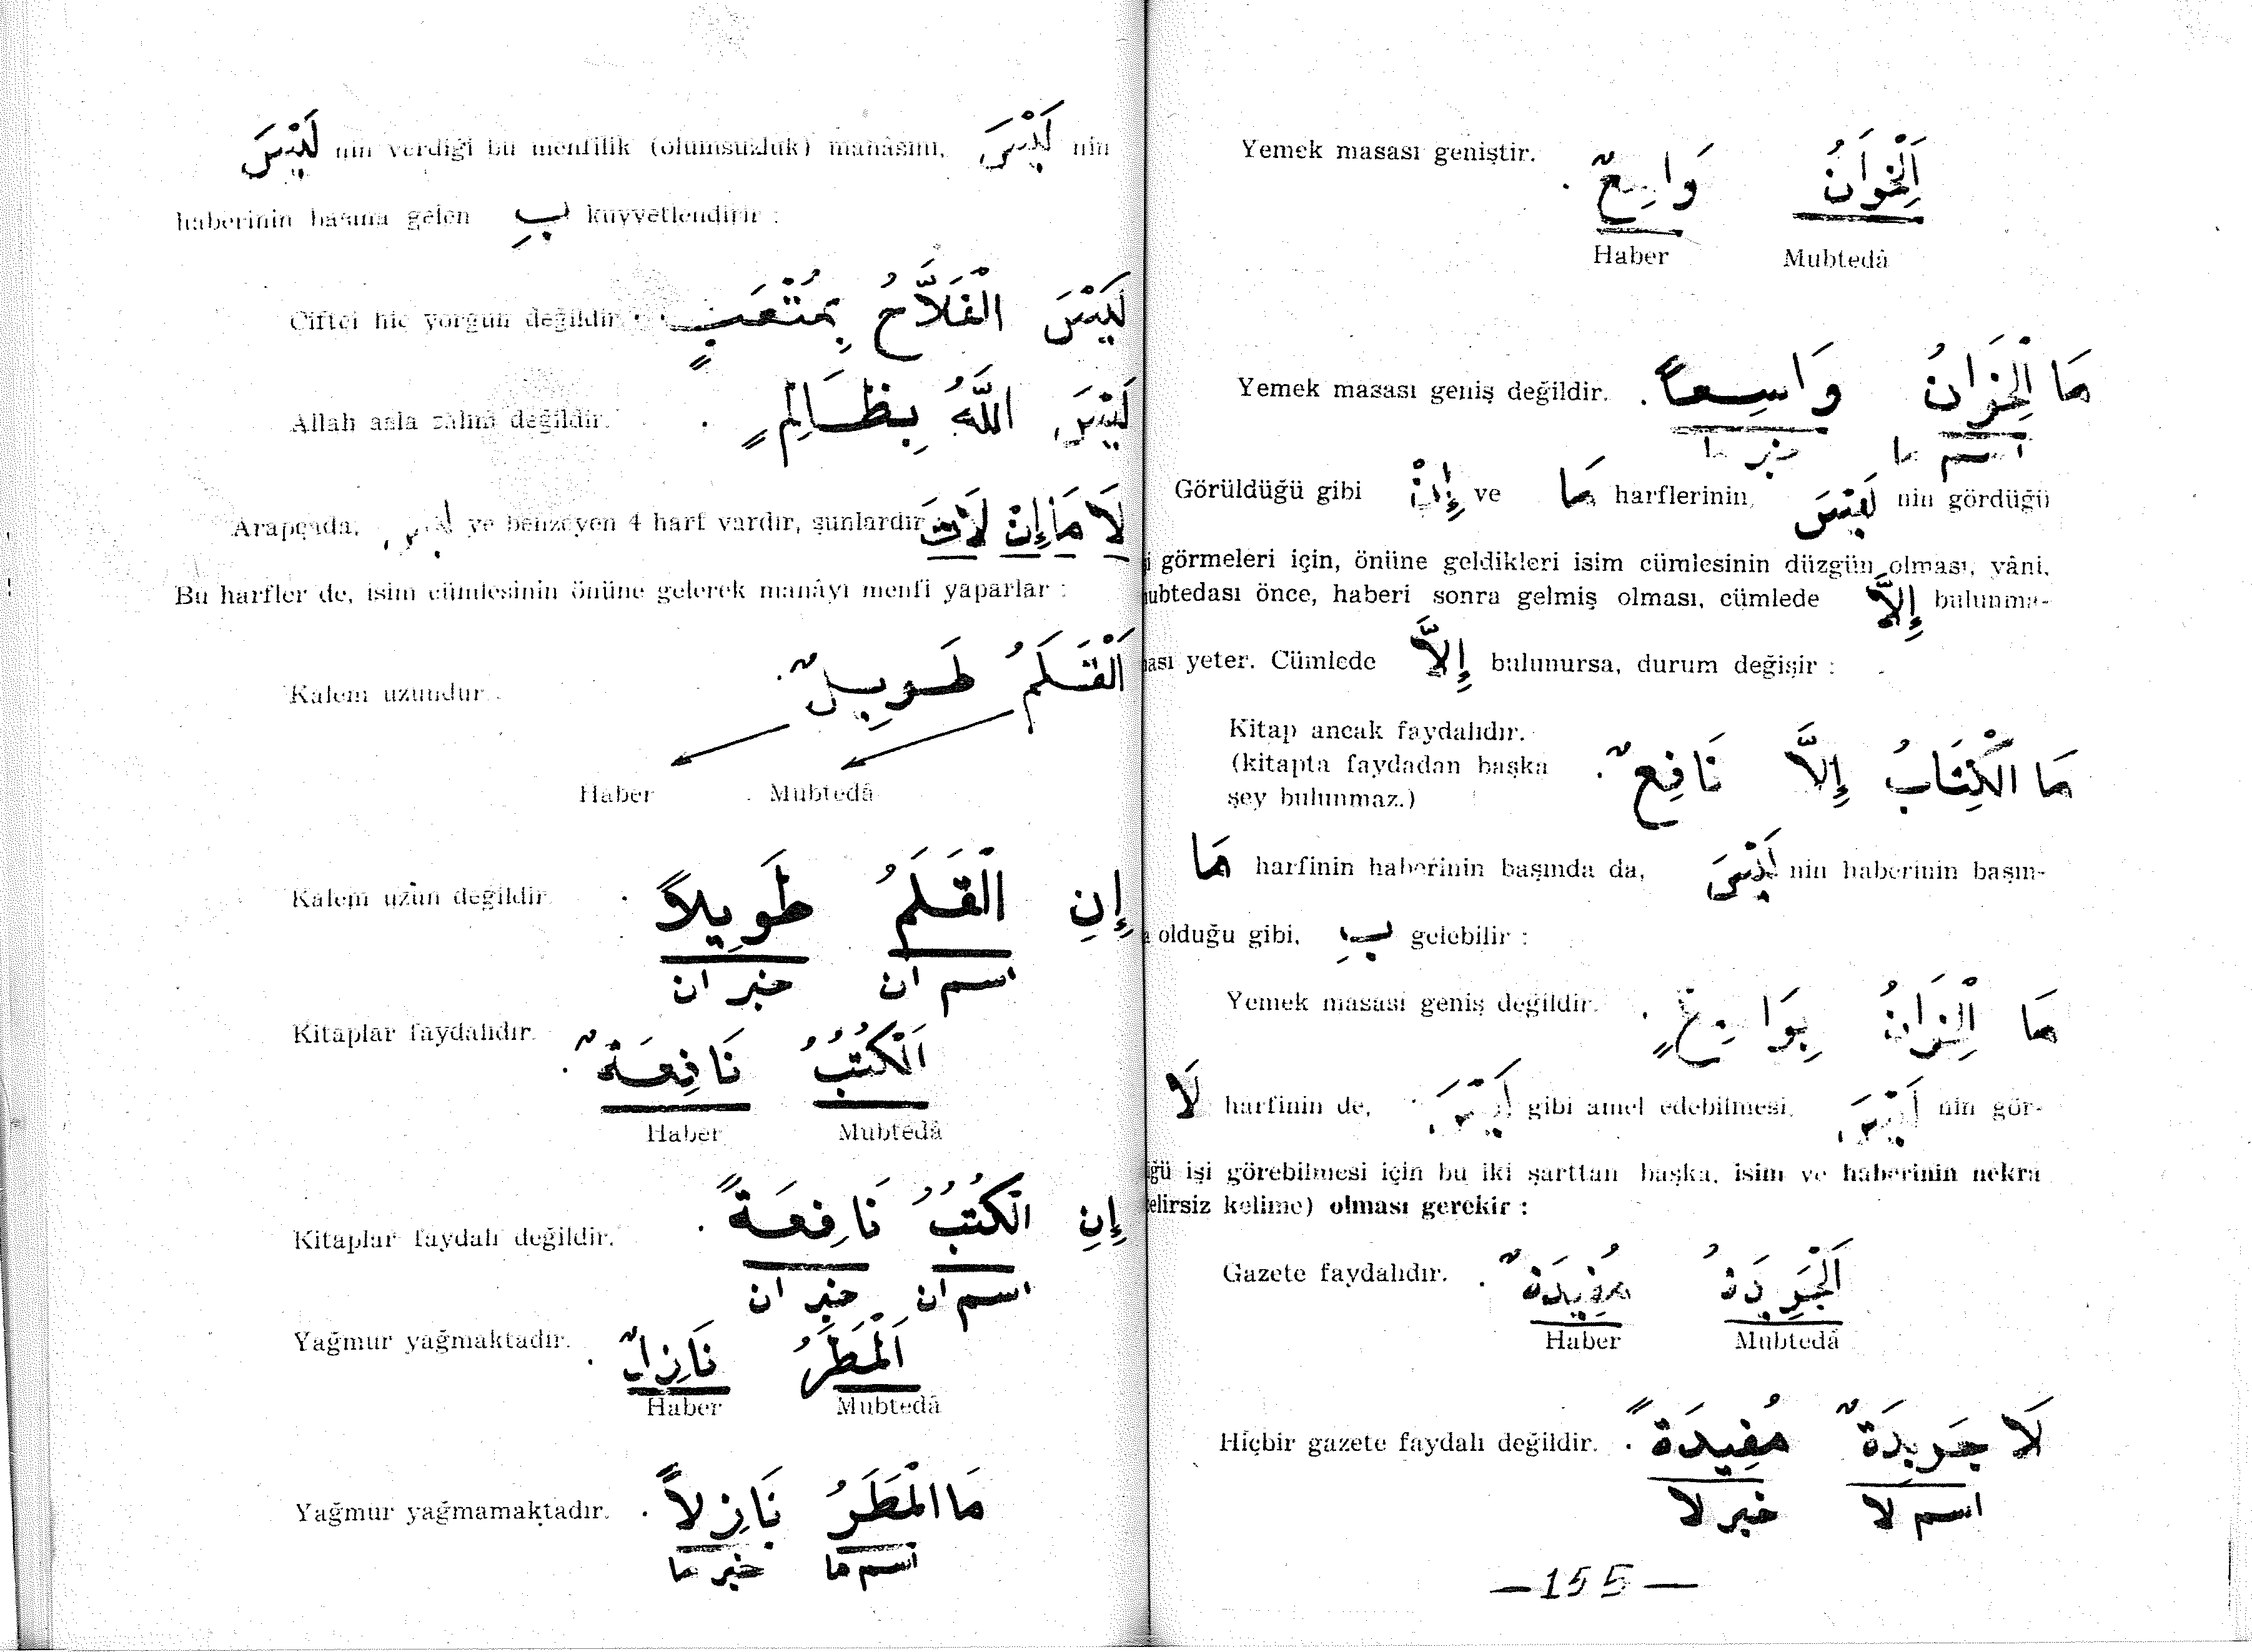 لَيْسَ nin verdiği bu menfilik (olumsuzluk) manâsını, لَيْسَ nin
haberinin başına gelen بِ kuvvetlendirir :
Çiftçi hiç yorgun değildir. لَيْسَ الْفَلَّاحُ بِمُتْعَبٍ .
Allah asla zalim değildir. لَيْسَ اللَّهُ بِظَالِمٍ .
Arapçada, لَيْسَ ye benzeyen 4 harf vardır, şunlardır لَا مَا إِنْ لَاتَ
Bu harfler de, isim cümlesinin önüne gelerek manâyı menfi yaparlar :
Kalem uzundur. اَلْقَلَمُ طَوِيلٌ .
Haber Mubtedâ
Kalem uzun değildir. إِنِ الْقَلَمُ طَوِيلاً .
اسم ان خبر ان
Kitaplar faydalıdır. اَلْكُتُبُ نَافِعَةٌ .
Haber Mubtedâ
Kitaplar faydalı değildir. إِنِ الْكُتُبُ نَافِعَةً .
اسم ان خبر ان
Yağmur yağmaktadır. اَلْمَطَرُ نَازِلٌ .
Haber Mubtedâ
Yağmur yağmamaktadır. مَا الْمَطَرُ نَازِلاً .
اسم ما خبر ما
Yemek masası geniştir. اَلْخِوَانُ وَاسِعٌ .
Haber Mubtedâ
Yemek masası geniş değildir. مَا الْخِوَانُ وَاسِعاً .
اسم ما خبر ما
Görüldüğü gibi إِنْ ve مَا harflerinin, لَيْسَ nin gördüğü
görmeleri için, önüne geldikleri isim cümlesinin düzgün olması, yâni,
mubtedası önce, haberi sonra gelmiş olması, cümlede إِلَّا bulunma-
ması yeter. Cümlede إِلَّا bulunursa, durum değişir :
Kitap ancak faydalıdır.
(kitapta faydadan başka مَا الْكِتَابُ إِلَّا نَافِعٌ .
şey bulunmaz.)
مَا harfinin haberinin başında da, لَيْسَ nin haberinin başın-
a olduğu gibi, بِ gelebilir :
Yemek masası geniş değildir. مَا الْخِوَانُ بِوَاسِعٍ .
لَا harfinin de, لَيْسَ gibi amel edebilmesi, لَيْسَ nin gör-
ğü işi görebilmesi için bu iki şarttan başka, isim ve haberinin nekra
elirsiz kelime) olması gerekir :
Gazete faydalıdır. اَلْجَرِيدَةُ مُفِيدَةٌ .
Haber Mubtedâ
Hiçbir gazete faydalı değildir. لَا جَرِيدَةٌ مُفِيدَةً .
اسم لا خبر لا
—155—